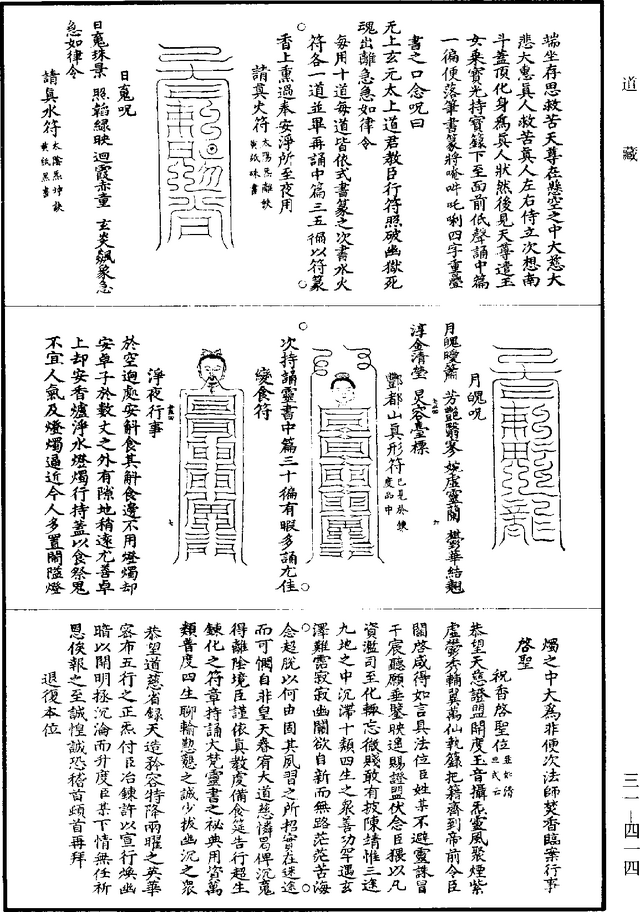 道藏
端坐存思救苦天尊在懸空之中大慈大
悲大惠真人救苦真人左右侍立次想南
斗蓋頂化身為真人狀然後見天尊遣玉
女乘寶光持寶籙下至面前低聲誦中篇
一徧便落筆書篆將唵吽吒唎四字重疊
書之口念呪曰
无上玄元太上道君教臣行符照破幽獄死
魂出離急急如律令
每用十道每道皆依式書篆之次書水火
符各一道並畢再誦中篇三五徧以符篆
香上熏過奉安淨所至夜用
請真火符 太陽炁離訣 黃紙硃書
日䰟呪
日䰟珠景 照韜綠映 迴霞赤童 玄炎飆象急
急如律令
請真水符 太陰炁坎訣 黃紙黑書
月魄呪
月魄曖蕭 芳艷翳寥 婉虛靈蘭 鬱華結翹
淳金清瑩 炅容臺標
酆都山真形符 已見 度品中
次持誦靈書中篇三十徧有暇多誦尤佳
變食符
淨夜行事
於空迥處安斛食其斛食邊不用燈燭却
安卓子於數丈之外有隙地稍遠尤善卓
上却安香爐淨水燈燭行持蓋以食祭鬼
不宜人氣及燈燭逼近令人多置閙隘燈
燭之中大為非便次法師焚香臨案行事
啓聖
祝香啓聖位
恭望天慈證盟開度玉音攝炁靈風聚煙紫
虛鬱秀輔翼萬仙執籙把籍齋到帝前令臣
關啓咸得如言具法位臣姓某不避靈誅冒
干宸聽願垂鑒映逈賜證盟伏念臣猥以凡
資濫司至化輒忘微賤敢有披陳緒惟三途
九地之中沉滯十類四生之衆善功罕遇玄
澤難霑寂寂幽關欲自新而無路茫茫苦海
念超脫以何由固其風習之所招實在迷途
而可憫自非皇天眷宥大道慈憐曷俾沉䰟
得離陰境臣謹依真教虔備食筵告行超生
鍊化之符章持誦大梵靈書之祕典用資萬
類普度四生聊輸懃懇之誠少拔幽沉之衆
恭望道慈省録天造矜容特降兩曜之英華
容布五行之正炁付臣冶鍊許以宣行煥幽
暗以開明拯沉淪而升度臣某下情無任祈
恩俟報之至誠惶誠恐稽首頓首再拜
退復本位
三一—四一四